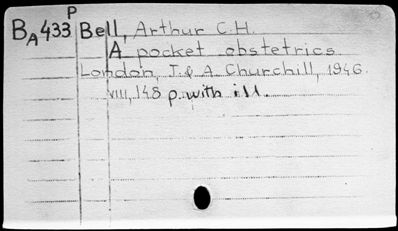 P
BA433 Bell, Arthur C.H.
A pocket obstetrics.
London, J. & A. Churchill, 1946.
VIII, 148 p. with ill.